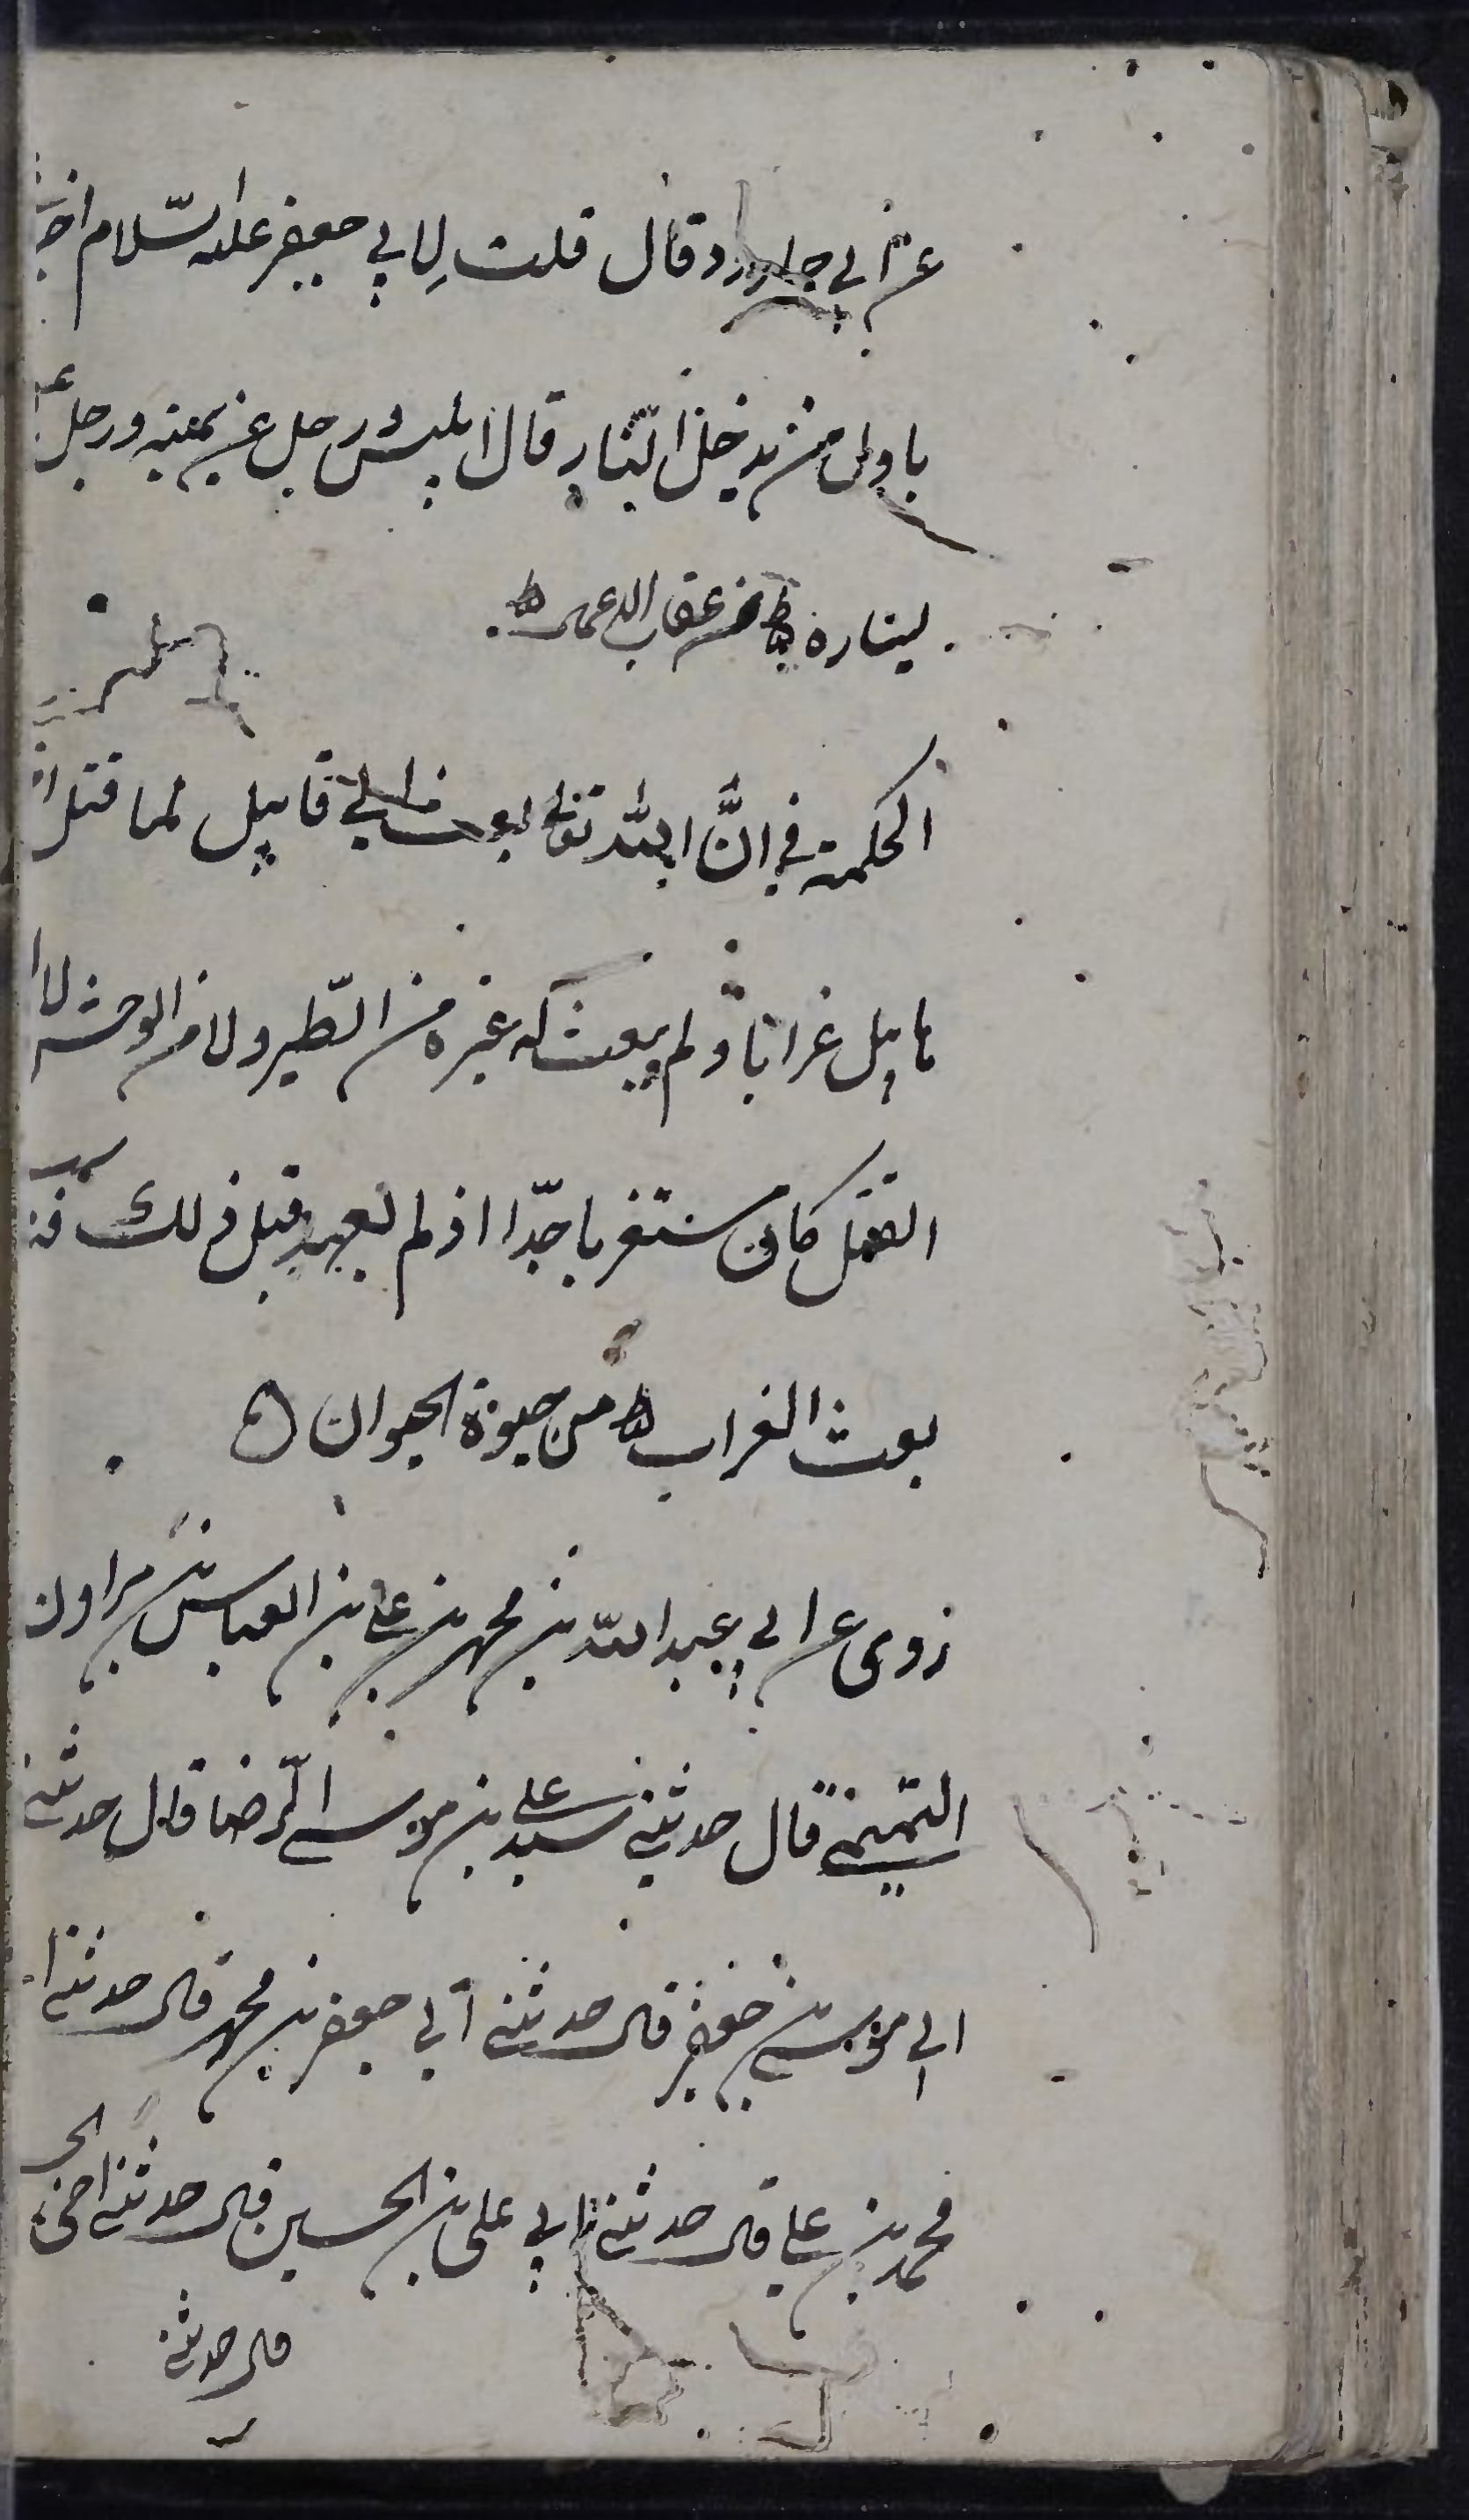 عن ابي جارود قال قلت لابي جعفر عليه السّلام اخبر
باول من يدخل النّار قال ابليس ورجل عن يمينه ورجل عن
يساره من عقاب الاعمال
الحكمة في انّ الله تعالى بعث الى قابيل لما قتل
هابيل غرابا ولم يبعث له غيره من الطّير ولا من الوحش لان
القتل كان مستغربا جدّا اذ لم يعهد قبل ذلك
بعث الغراب من حيوة الحيوان
روى عن ابي عبد الله بن محمد بن علي بن العباس بن
التميمي قال حدثني سيد علي بن موسى الرّضا قال حدثني
ابي موسى بن جعفر قال حدثني ابي جعفر بن محمد قال حدثني
محمد بن علي قال حدثني ابي علي بن الحسين قال حدثني اخي
قال حدثني